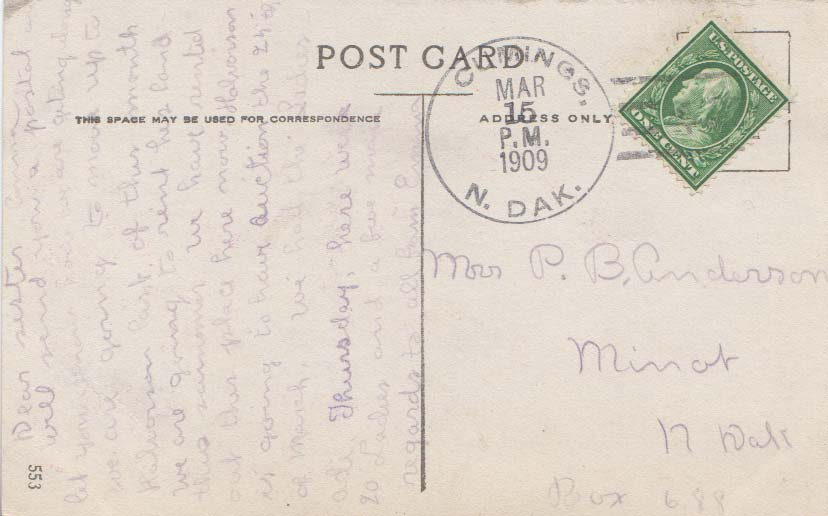 POST CARD
THIS SPACE MAY BE USED FOR CORRESPONDENCE
ADDRESS ONLY
CUMMINGS.
MAR
15
P.M.
1909
N. DAK.
U.S. POSTAGE
ONE CENT
Mrs P. B. Anderson
Minot
N Dak
Box 688
Dear sister
will send you a postal
let you know how we are geting along
we are going to move up to
last of this month
we are going to rent his land
this summer we have rented
out this place here now
is going to have auction the 24
of March, we had the Ladies
Aid Thursday, here was
20 Ladies and a few men
regards to all from Emma
553